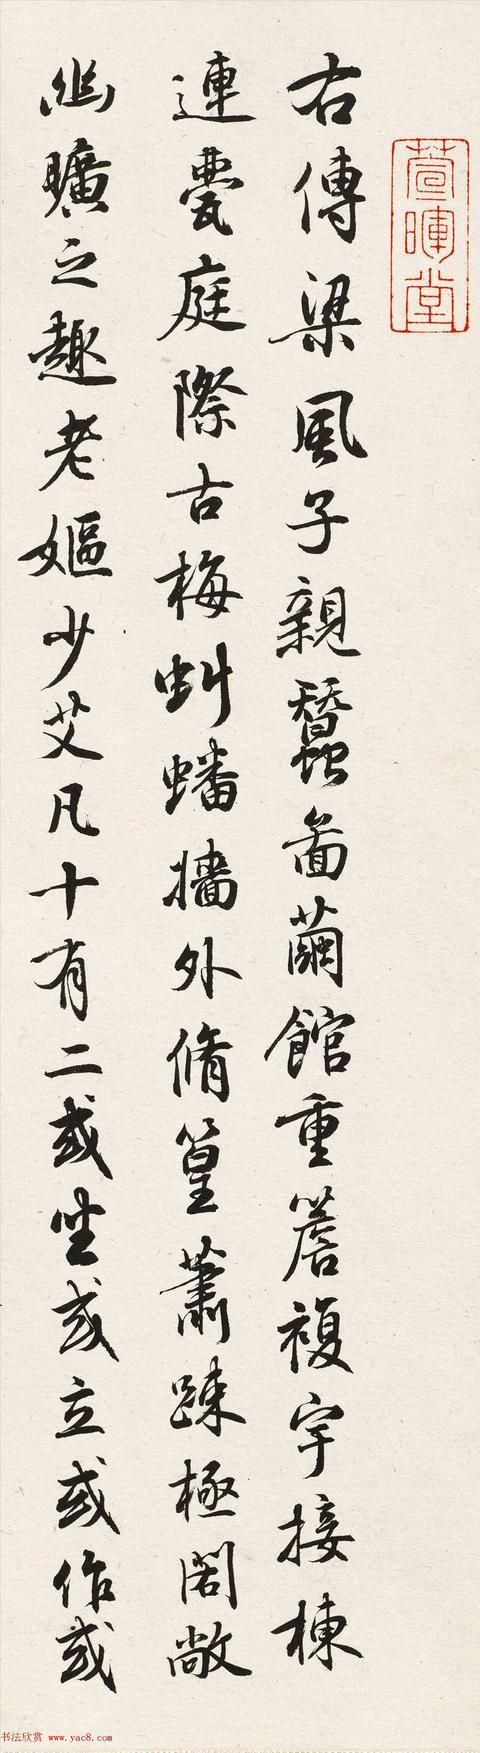 萱暉堂
右傳梁風子親蠶啚繭館重簷複宇接棟
連甍庭際古梅虯蟠牆外脩篁蕭疎極閎敞
幽曠之趣老嫗少艾凡十有二或坐或立或作或
书法欣赏 www.yac8.com